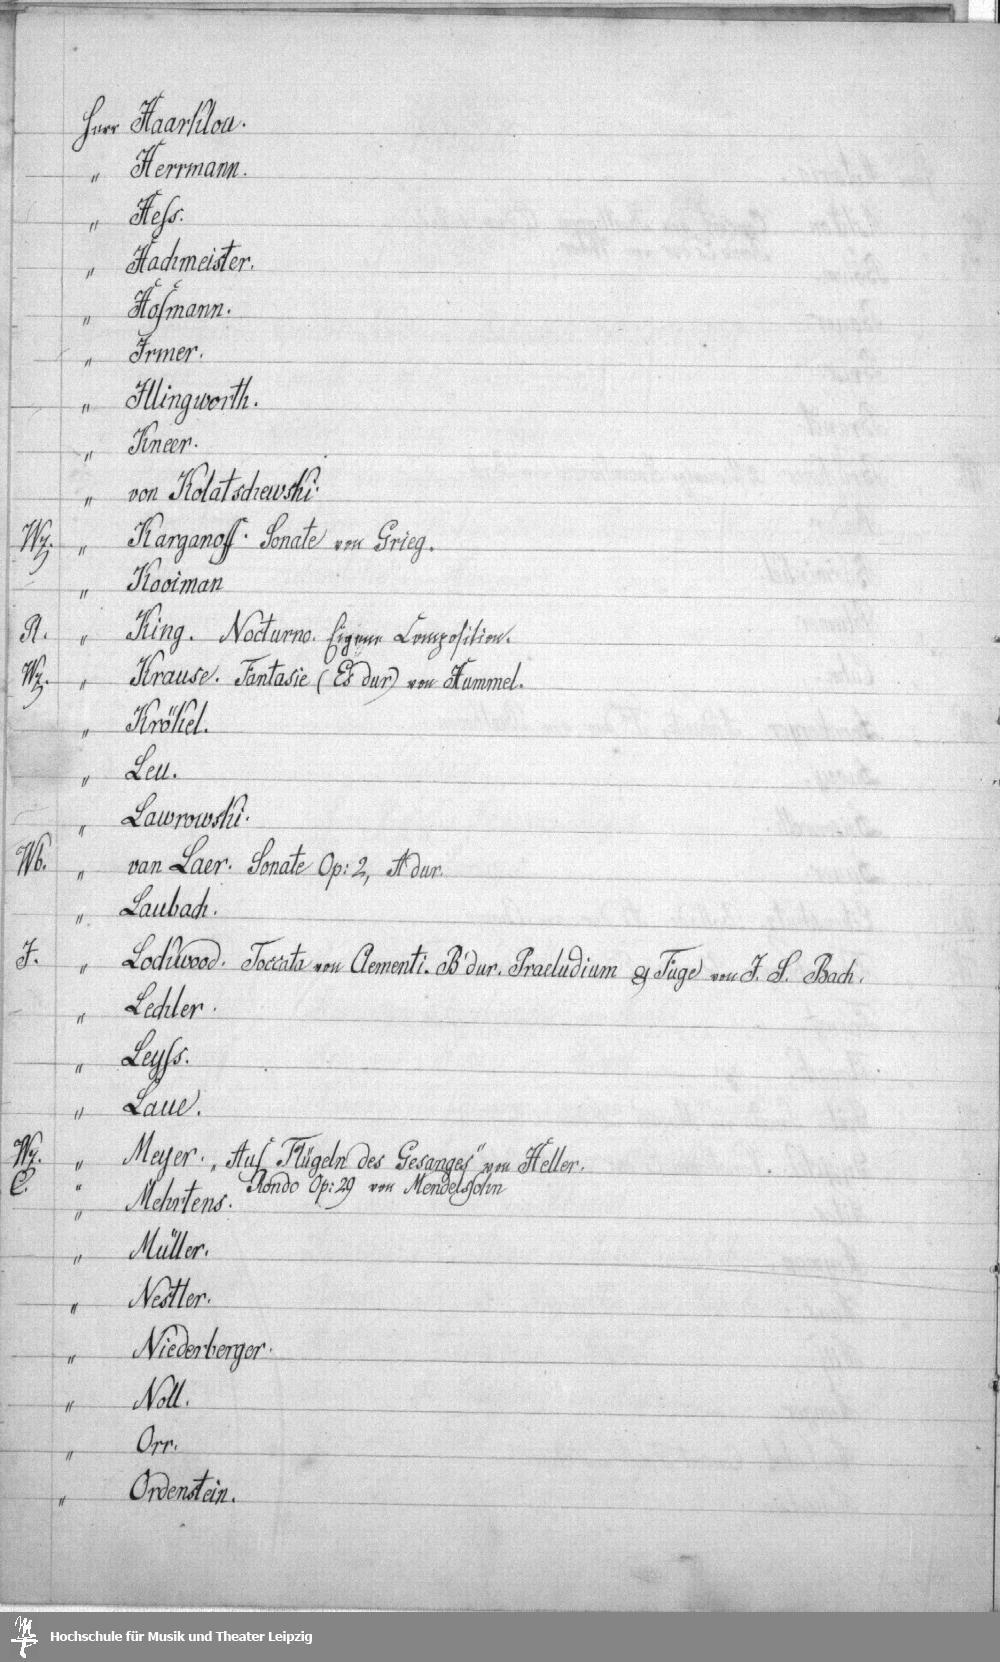 Herr Haarklou.
" Herrmann.
" Hess.
" Hachmeister.
" Hofmann.
" Irmer.
" Illingworth.
" Kneer.
" von Kolatschewski.
Wz. " Karganoff. Sonate von Grieg.
" Kooiman
R. " King. Nocturno. Eigene Composition.
Wz. " Krause. Fantasie (Es dur) von Hummel.
" Krökel.
" Leu.
" Lawrowski.
Wb. " van Laer. Sonate Op: 2, A dur.
" Laubach.
J. " Lockwood. Toccata von Clementi. B dur. Praeludium & Fuge von J. S. Bach.
" Lechler.
" Leyss.
" Laue.
Wz. " Meyer. „Auf Flügeln des Gesanges" von Heller.
C. " Rondo Op: 29 von Mendelssohn
" Mehrtens.
" Müller.
" Nestler.
" Niederberger.
" Noll.
" Orr.
" Ordenstein.
Hochschule für Musik und Theater Leipzig